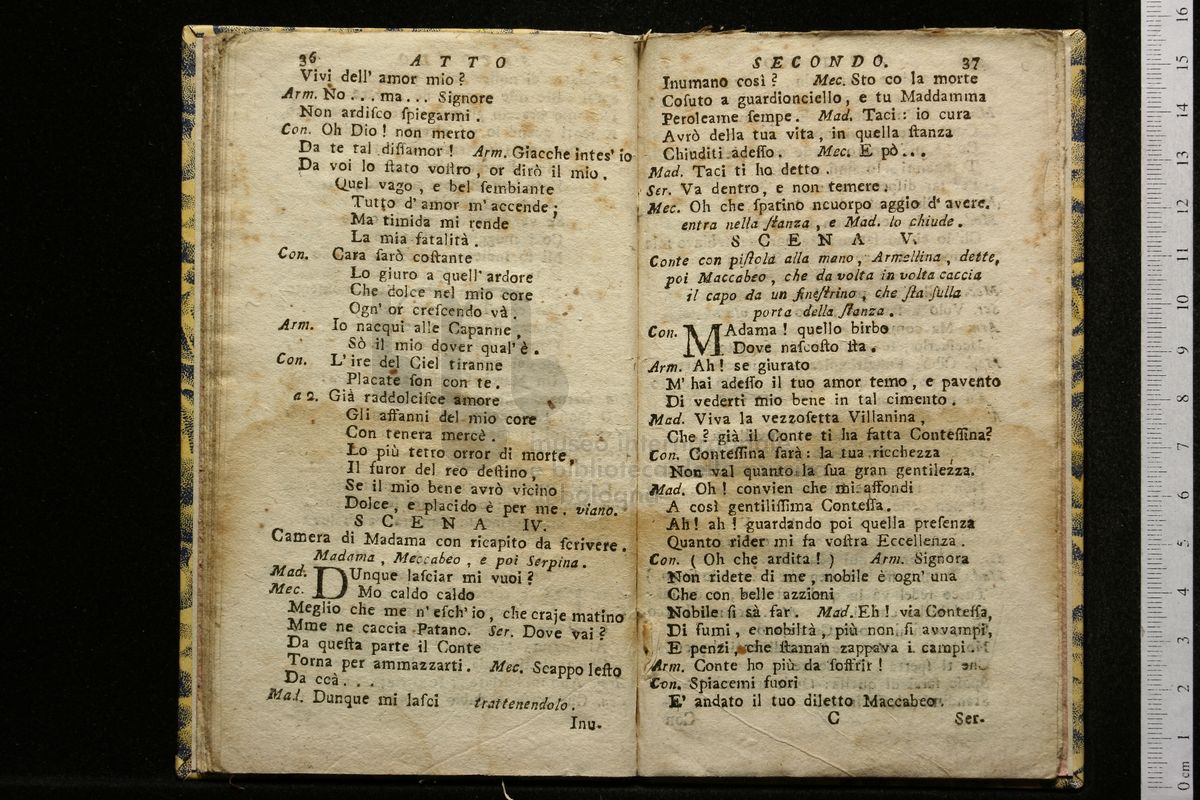 36 ATTO
Vivi dell' amor mio?
Arm. No... ma... Signore
Non ardiſco ſpiegarmi.
Con. Oh Dio! non merto
Da te tal diſſamor! Arm. Giacche intes' io
Da voi lo ſtato voſtro, or dirò il mio.
Quel vago, e bel ſembiante
Tutto d' amor m' accende;
Ma timida mi rende
La mia fatalità.
Con. Cara ſarò coſtante
Lo giuro a quell' ardore
Che dolce nel mio core
Ogn' or creſcendo và.
Arm. Io nacqui alle Capanne,
Sò il mio dover qual' è.
Con. L' ire del Ciel tiranne
Placate ſon con te.
a 2. Già raddolciſce amore
Gli affanni del mio core
Con tenera mercè.
Lo più tetro orror di morte,
Il furor del reo deſtino,
Se il mio bene avrò vicino
Dolce, e placido è per me. viano.
SCENA IV.
Camera di Madama con ricapito da ſcrivere.
Madama, Meccabeo, e poi Serpina.
Mad. DUnque laſciar mi vuoi?
Mec. Mo caldo caldo
Meglio che me n' eſch' io, che craje matino
Mme ne caccia Patano. Ser. Dove vai?
Da queſta parte il Conte
Torna per ammazzarti. Mec. Scappo leſto
Da ccà...
Mad. Dunque mi laſci trattenendolo.
Inu-
SECONDO. 37
Inumano così? Mec. Sto co la morte
Coſuto a guardionciello, e tu Maddamma
Peroleame ſempe. Mad. Taci: io cura
Avrò della tua vita, in quella ſtanza
Chiuditi adeſſo. Mec. E pò...
Mad. Taci ti ho detto.
Ser. Va dentro, e non temere.
Mec. Oh che ſpatino ncuorpo aggio d' avere.
entra nella ſtanza, e Mad. lo chiude.
SCENA V.
Conte con piſtola alla mano, Armellina, dette,
poi Maccabeo, che da volta in volta caccia
il capo da un fineſtrino, che ſta ſulla
porta della ſtanza.
Con. MAdama! quello birbo
Dove naſcoſto ſta.
Arm. Ah! se giurato
M' hai adeſſo il tuo amor temo, e pavento
Di vederti mio bene in tal cimento.
Mad. Viva la vezzoſetta Villanina,
Che? già il Conte ti ha fatta Conteſſina?
Con. Conteſſina ſarà: la tua ricchezza
Non val quanto la ſua gran gentilezza.
Mad. Oh! convien che mi affondi
A così gentiliſſima Conteſſa.
Ah! ah! guardando poi quella preſenza
Quanto rider mi fa voſtra Eccellenza.
Con. (Oh che ardita!) Arm. Signora
Non ridete di me, nobile è ogn' una
Che con belle azzioni
Nobile ſi sà far. Mad. Eh! via Conteſſa,
Di fumi, e nobiltà, più non ſi avvampi,
E penzi, che ſtaman zappava i campi.
Arm. Conte ho più da ſoffrir!
Con. Spiacemi fuori
E' andato il tuo diletto Maccabeo.
C Ser-
museo internazionale
e biblioteca
bologna
0 cm 1 2 3 4 5 6 7 8 9 10 11 12 13 14 15 16